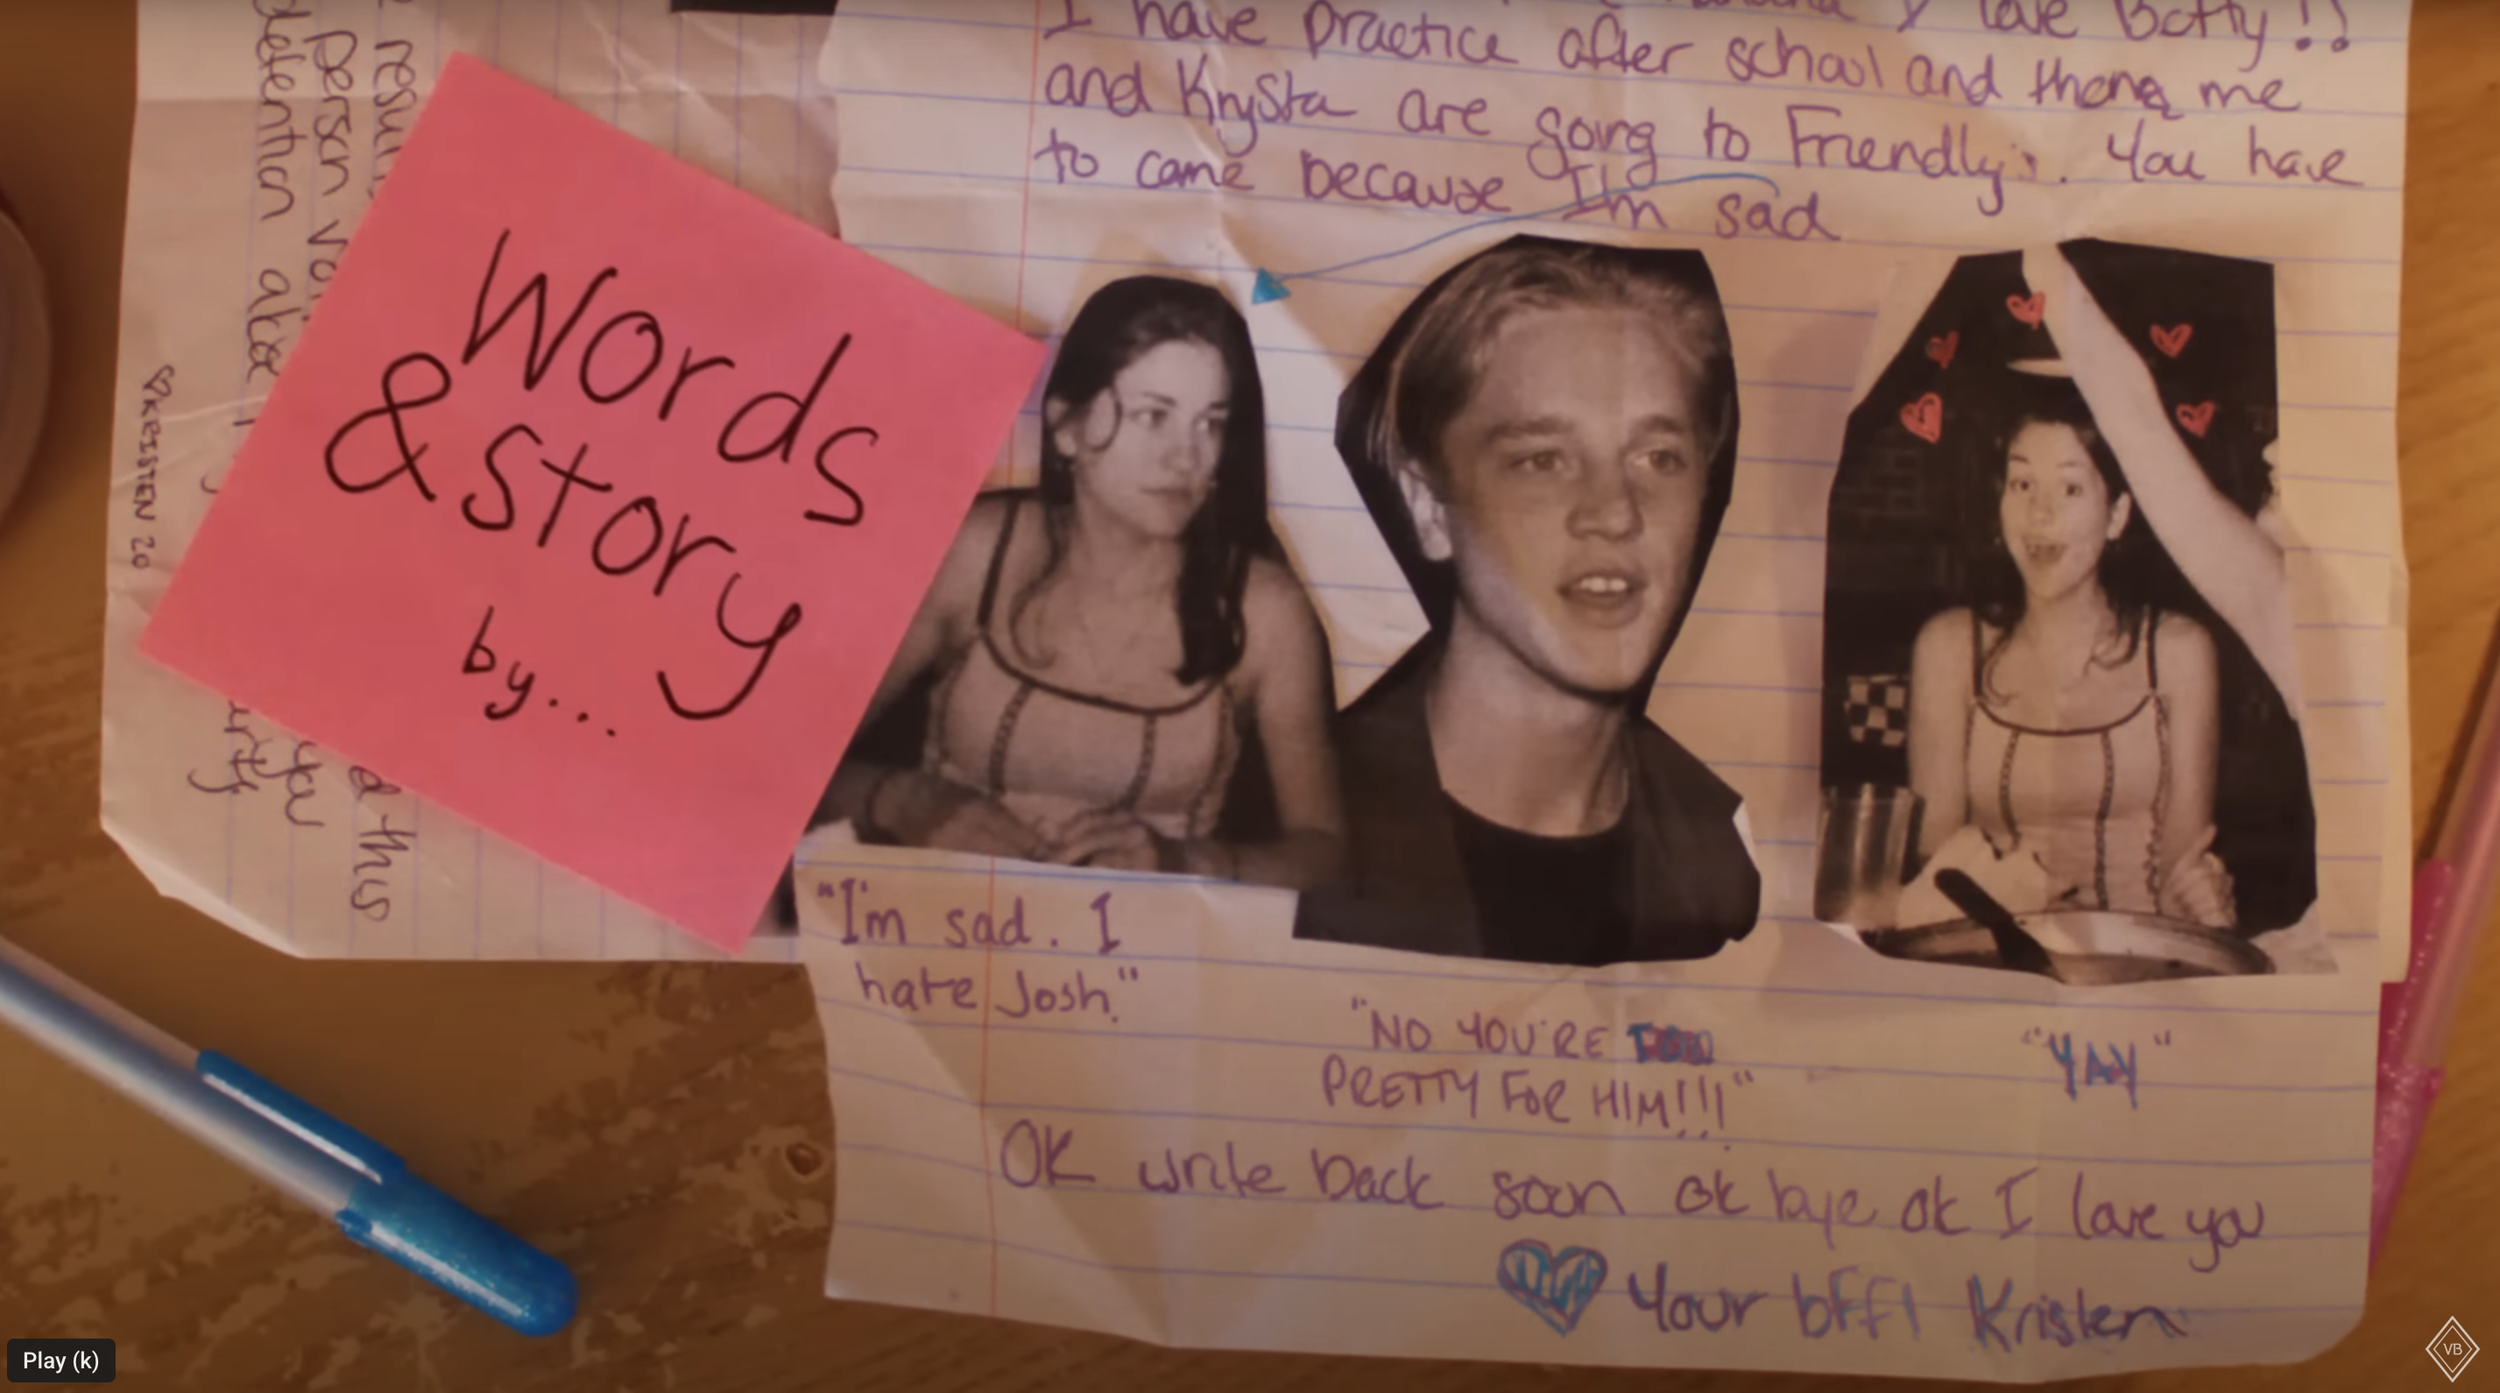 I have practice after school and then me
and Krysta are going to Friendly's. You have
to come because I'm sad
person
detention
this
you
♡KRISTEN 20
Words
& Story
by...
"I'm sad. I
hate Josh."
"NO YOU'RE
PRETTY FOR HIM!!!"
"YAY"
OK write back soon ok bye ok I love you
Your bff! Kristen
Play (k)
VB